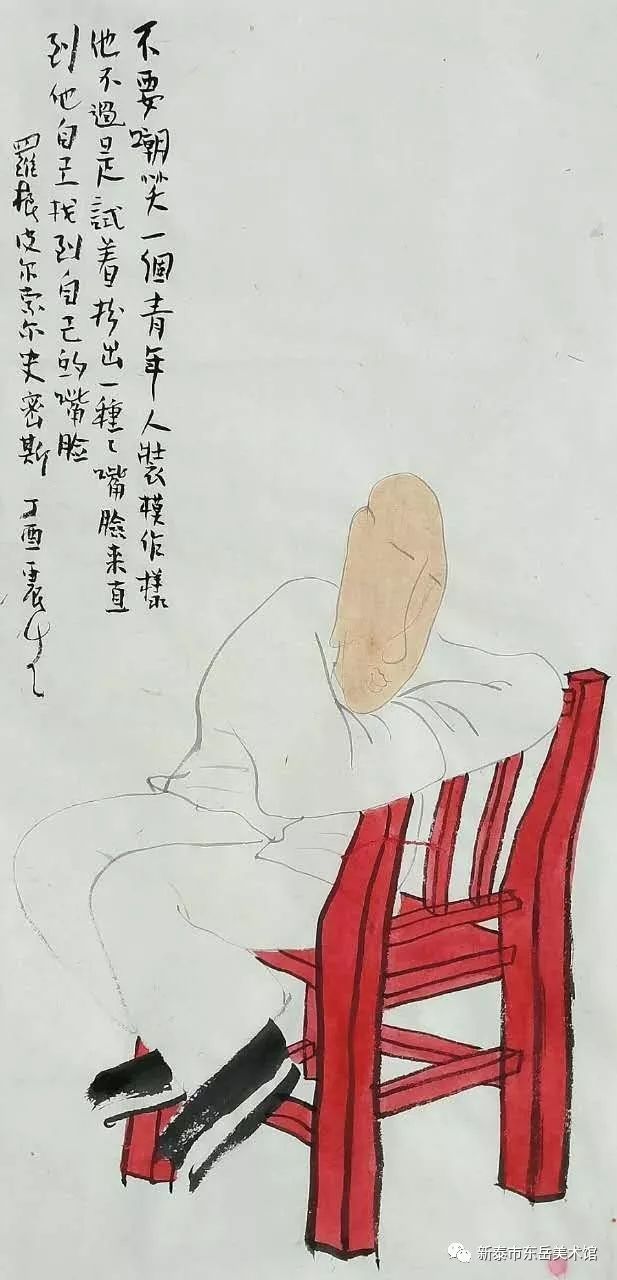 不要嘲笑一個青年人裝模作樣
他不過是試着扮出一種々嘴臉来直
到他自己找到自己的嘴脸
羅根皮尔索尔史密斯 丁酉震
新泰市东岳美术馆